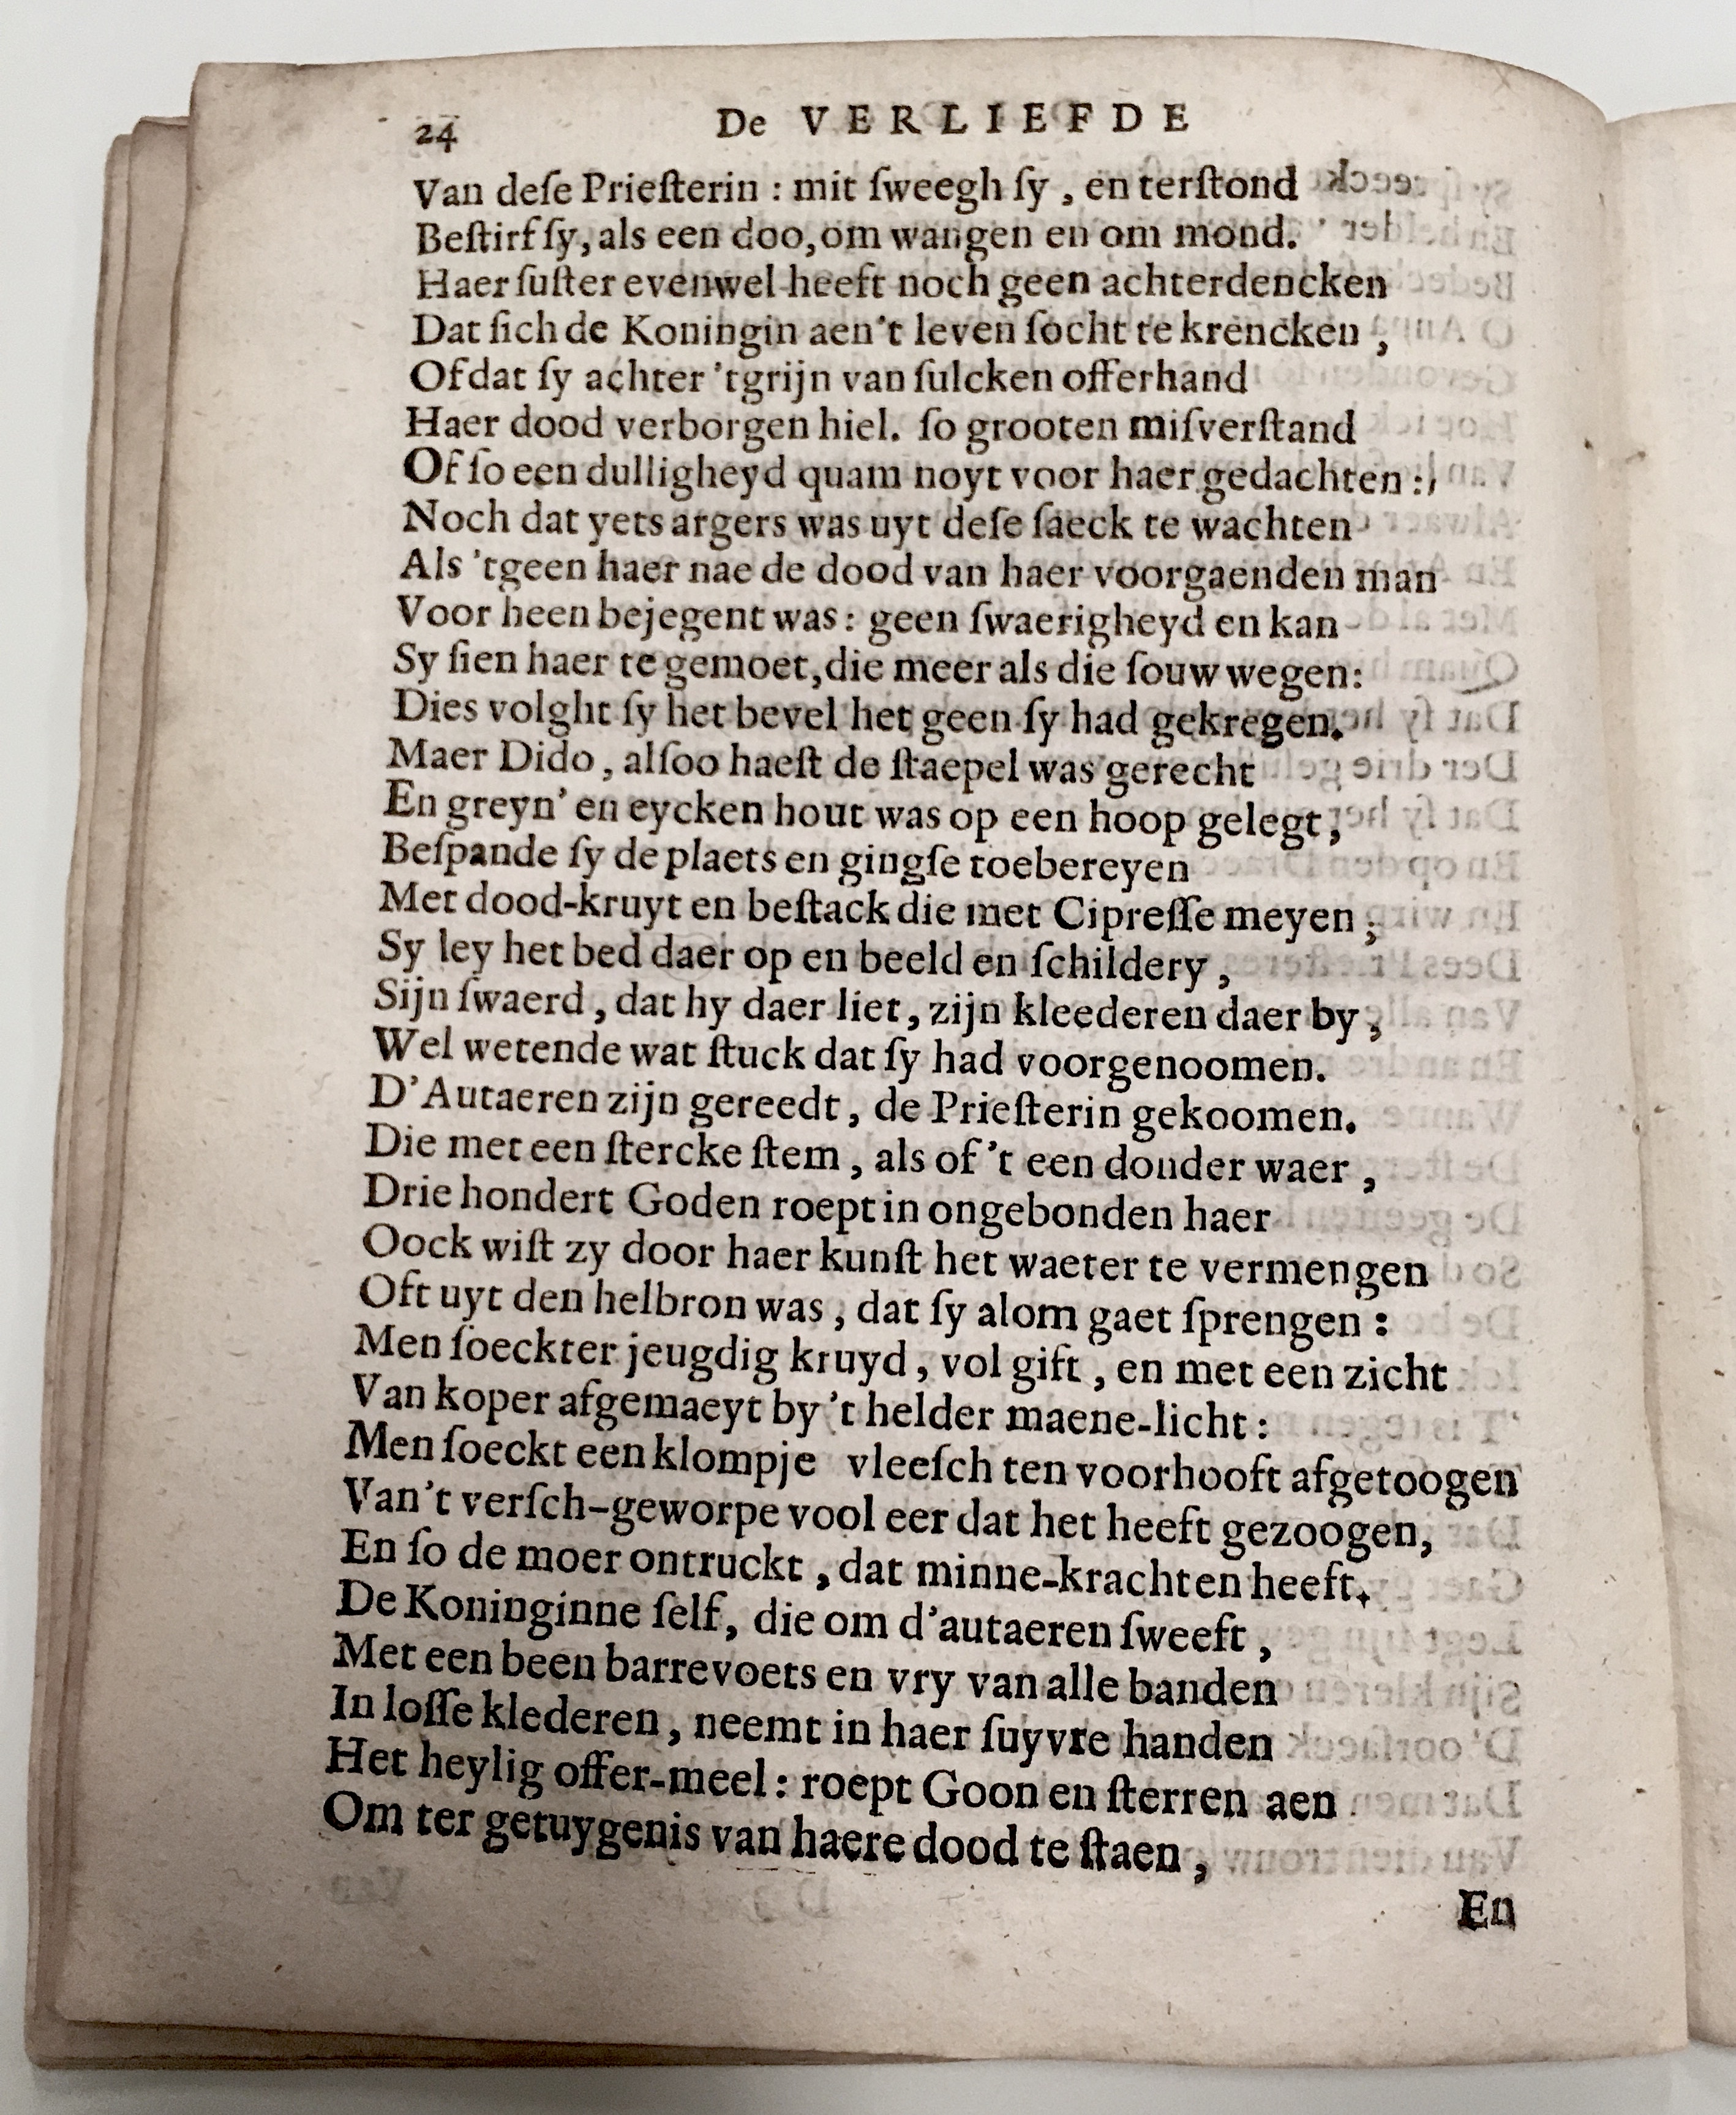 24 De VERLIEFDE
Van deſe Prieſterin : mit ſweegh ſy , en terſtond
Beſtirf ſy, als een doo, om wangen en om mond.
Haer ſuſter evenwel heeft noch geen achterdencken
Dat ſich de Koningin aen't leven ſocht te krencken ,
Of dat ſy achter 'tgrijn van ſulcken offerhand
Haer dood verborgen hiel. ſo grooten miſverſtand
Of ſo een dulligheyd quam noyt voor haer gedachten :
Noch dat yets argers was uyt deſe ſaeck te wachten
Als 'tgeen haer nae de dood van haer voorgaenden man
Voor heen bejegent was : geen ſwaerigheyd en kan
Sy ſien haer te gemoet, die meer als die ſouw wegen:
Dies volght ſy het bevel het geen ſy had gekregen.
Maer Dido , alſoo haeſt de ſtaepel was gerecht
En greyn' en eycken hout was op een hoop gelegt ,
Beſpande ſy de plaets en gingſe toebereyen
Met dood-kruyt en beſtack die met Cipreſſe meyen ;
Sy ley het bed daer op en beeld en ſchildery ,
Sijn ſwaerd , dat hy daer liet , zijn kleederen daer by ,
Wel wetende wat ſtuck dat ſy had voorgenoomen.
D'Autaeren zijn gereedt , de Prieſterin gekoomen.
Die met een ſtercke ſtem , als of 't een donder waer ,
Drie hondert Goden roept in ongebonden haer
Oock wiſt zy door haer kunſt het waeter te vermengen
Oft uyt den helbron was , dat ſy alom gaet ſprengen :
Men ſoeckter jeugdig kruyd , vol gift , en met een zicht
Van koper afgemaeyt by 't helder maene-licht :
Men ſoeckt een klompje vleeſch ten voorhooft afgetoogen
Van't verſch-geworpe vool eer dat het heeft gezoogen,
En ſo de moer ontruckt , dat minne-krachten heeft.
De Koninginne ſelf, die om d'autaeren ſweeft ,
Met een been barrevoets en vry van alle banden
In loſſe klederen , neemt in haer ſuyvre handen
Het heylig offer-meel : roept Goon en ſterren aen
Om ter getuygenis van haere dood te ſtaen ,
En